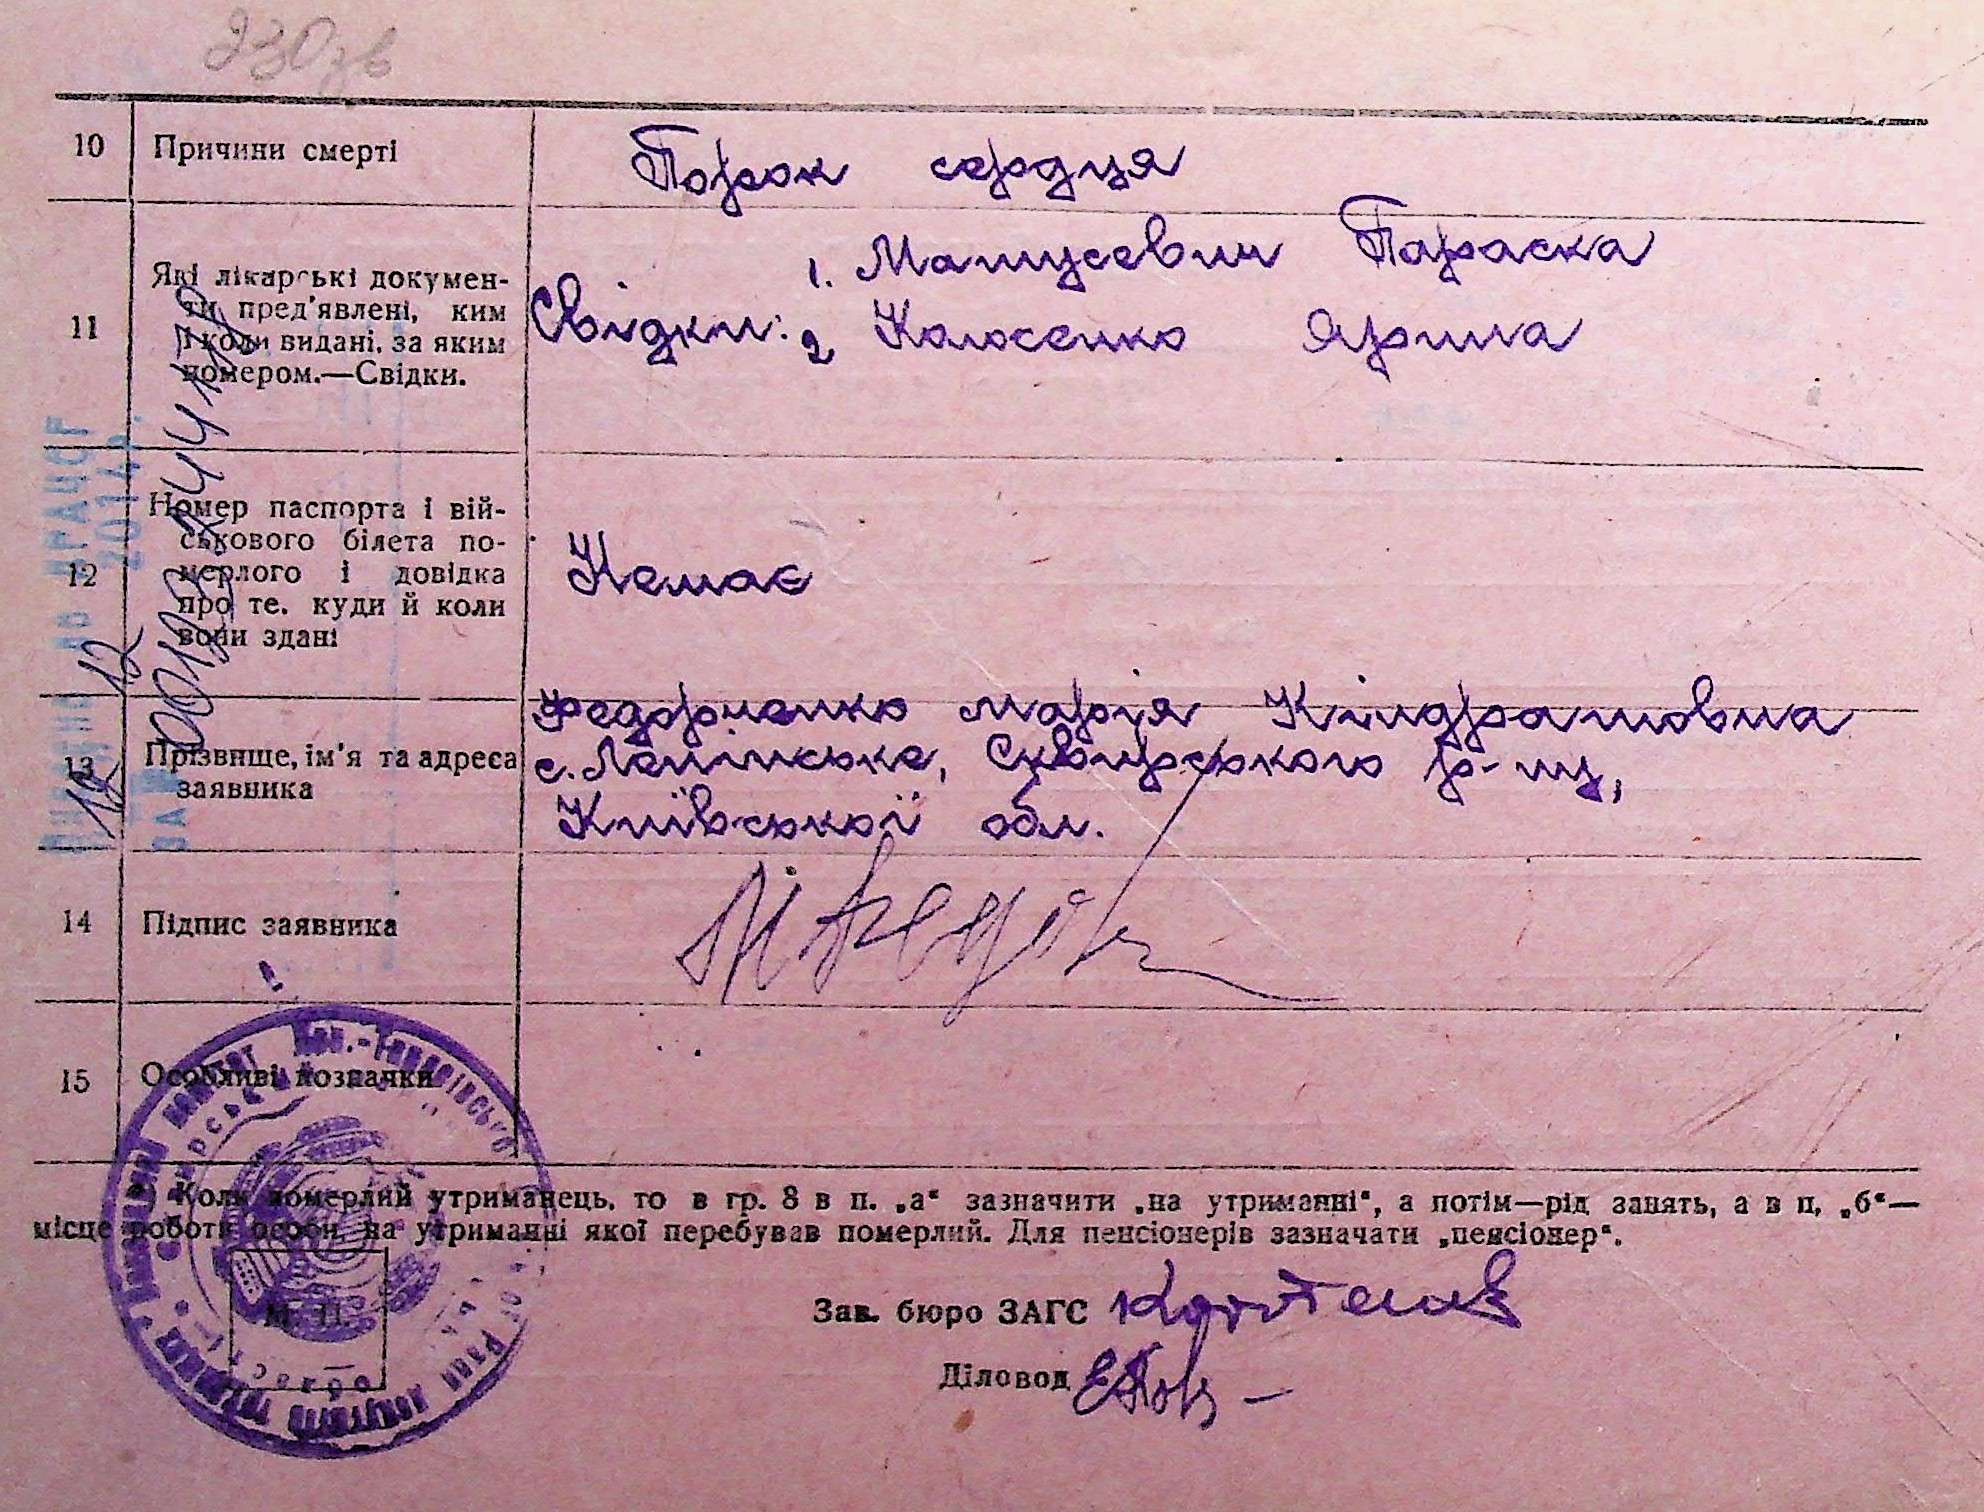 230зв
10 Причини смерті Порок сердця
11 Які лікарські докумен-
ти пред'явлені, ким
й коли видані, за яким
номером.—Свідки.
Свідки: 1. Матусевич Параска
2 Колосенко Ярина
12 Номер паспорта і вій-
ськового білета по-
мерлого і довідка
про те. куди й коли
вони здані
Немає
13 Прізвище, ім'я та адреса
заявника
Федорченко Марія Кіндратовна
с. Ленінське, Сквирського р-ну,
Київської обл.
14 Підпис заявника
15 Особливі позначки
* Коли померлий утриманець, то в гр. 8 в п. „а“ зазначити „на утриманні“, а потім—рід занять, а в п. „б“—
місце роботи особи на утриманні якої перебував померлий. Для пенсіонерів зазначати „пенсіонер“.
М. П.
Зав. бюро ЗАГС
Діловод
2014
12 12